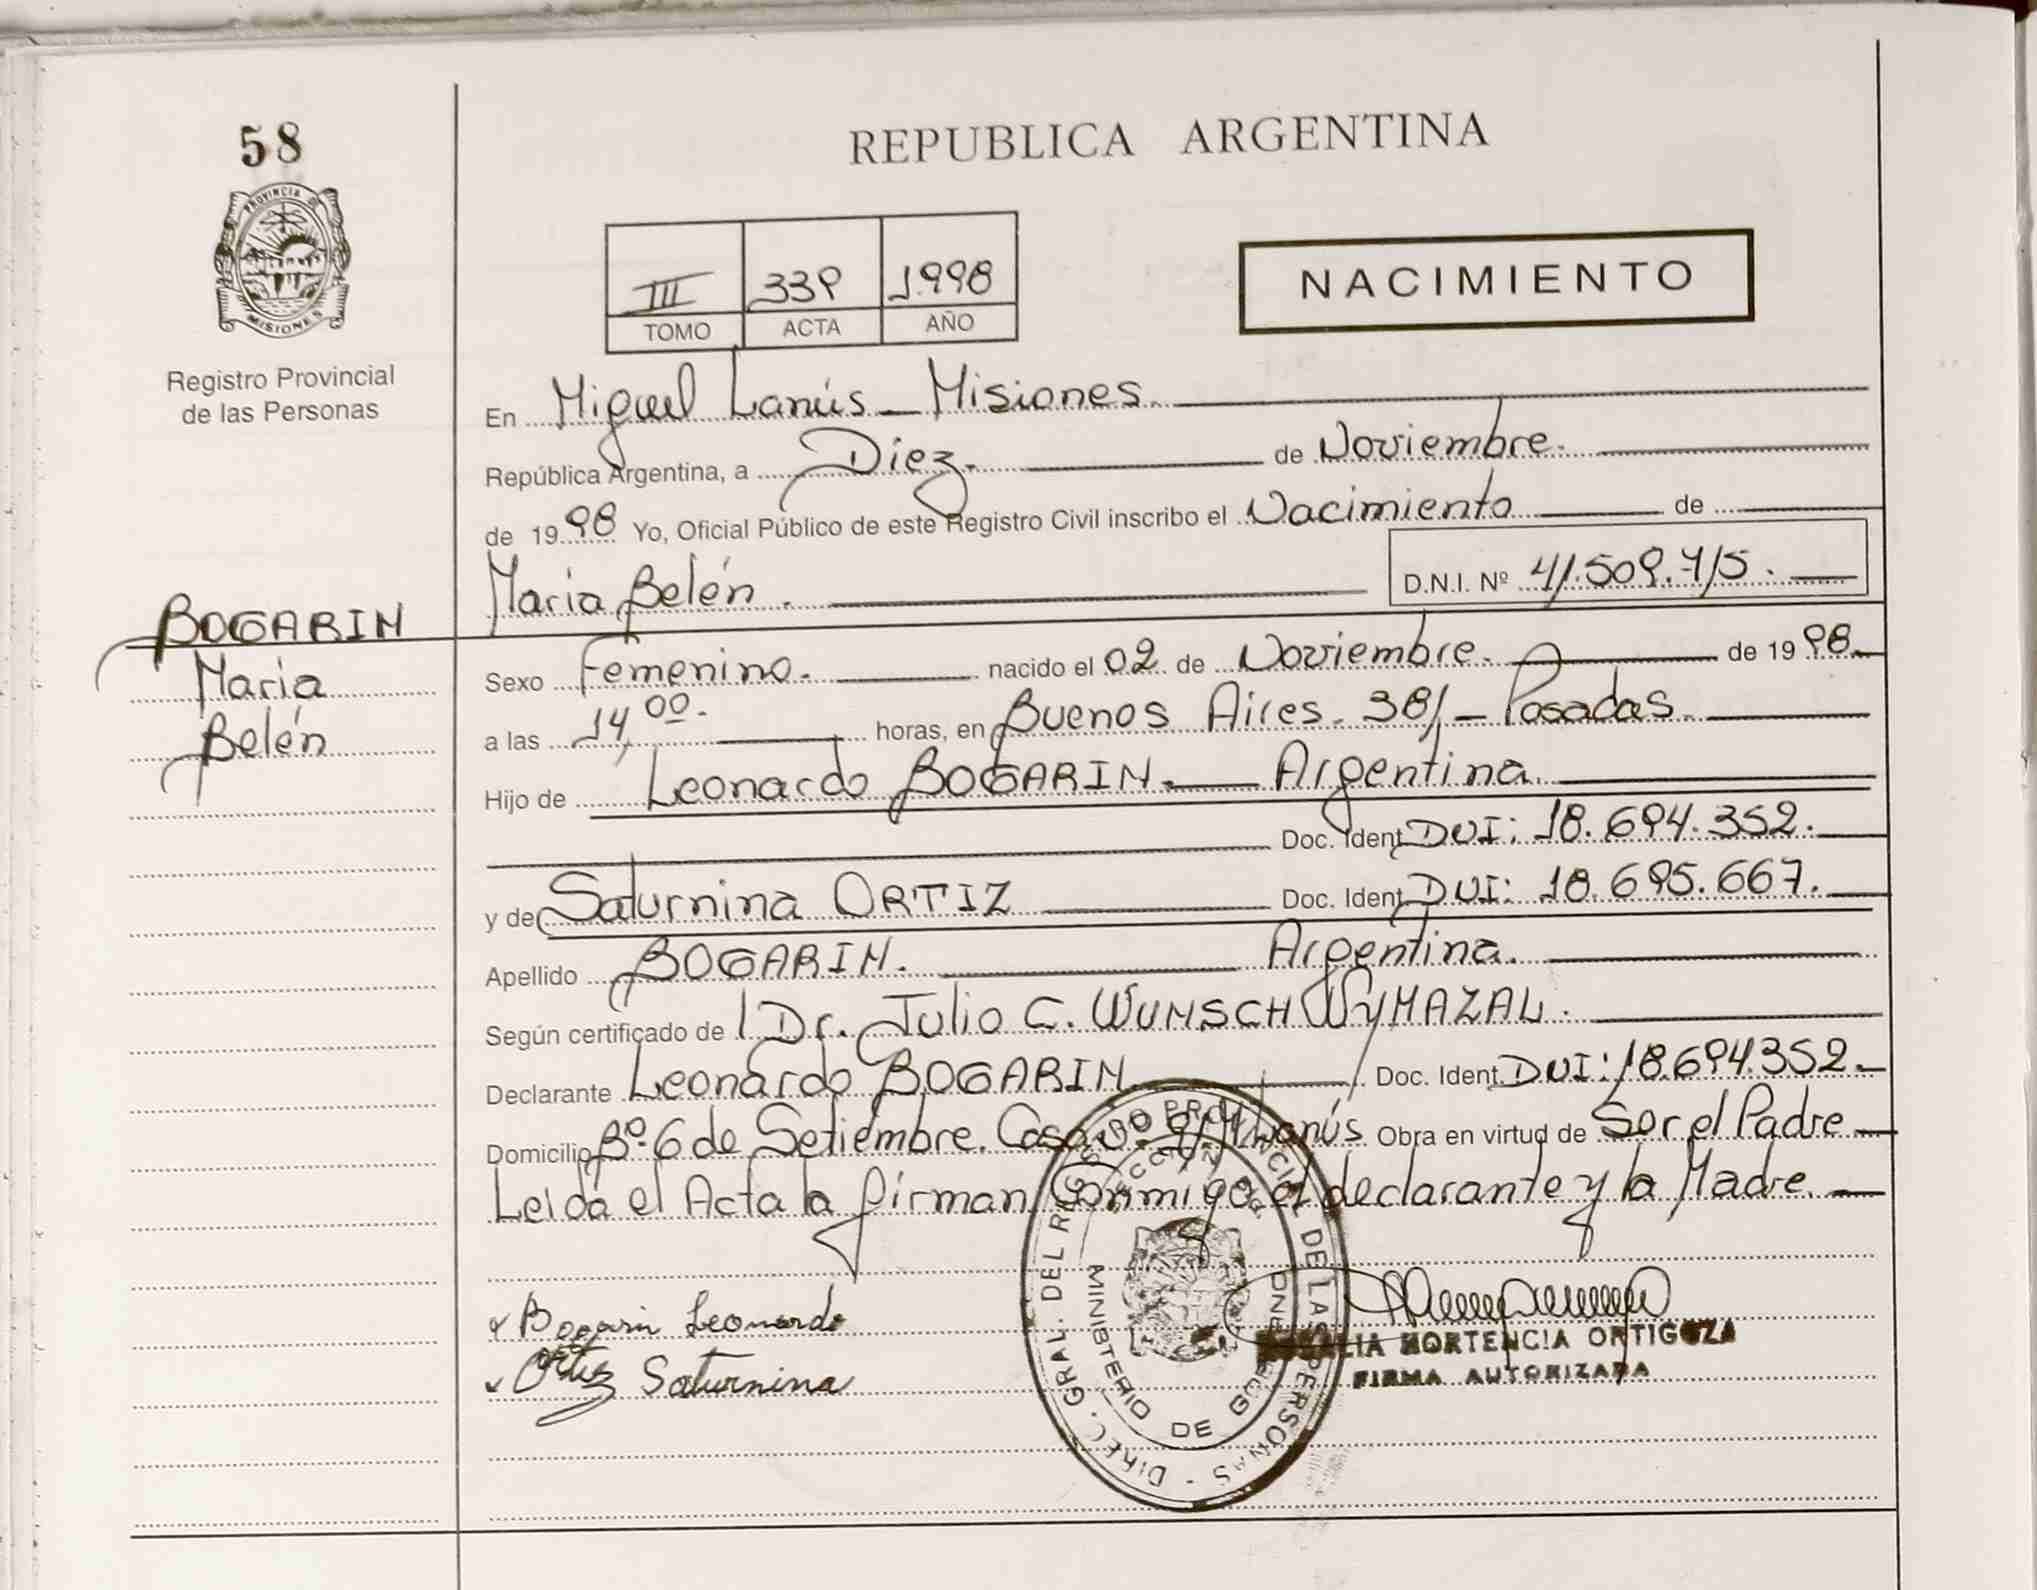 58
REPUBLICA ARGENTINA
PROVINCIA DE
MISIONES
III 339 1998
TOMO ACTA AÑO
NACIMIENTO
Registro Provincial
de las Personas
En Miguel Lanús - Misiones.
República Argentina, a Diez. de Noviembre.
de 1998 Yo, Oficial Público de este Registro Civil inscribo el Nacimiento de
María Belén. D.N.I. Nº 41.509.715.
BOGARIN
María
Belén
Sexo Femenino. nacido el 02 de Noviembre. de 1998.
a las 14,00. horas, en Buenos Aires. 381 - Posadas.
Hijo de Leonardo BOGARIN. Argentina.
Doc. Ident DUI: 18.694.352.
y de Saturnina ORTIZ Doc. Ident DUI: 18.695.667.
Apellido BOGARIN. Argentina.
Según certificado de Dr. Julio C. WUNSCH WYMAZAL.
Declarante Leonardo BOGARIN. Doc. Ident DUI: 18.694.352.
Domicilio Bº 6 de Setiembre. Casa Lanús. Obra en virtud de Ser el Padre
Leida el Acta la firman Conmigo el declarante y la Madre.
Bogarin Leonardo
Ortiz Saturnina
HORTENCIA ORTIGOZA
FIRMA AUTORIZADA
DIREC. GRAL. DEL REGISTRO PROVINCIAL DE LAS PERSONAS -
MINISTERIO DE GOBIERNO